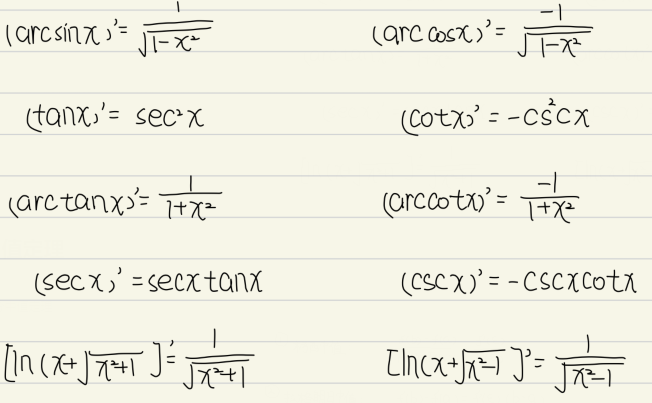 (arcsinx)'= 1/√(1-x²) (arccosx)'= -1/√(1-x²)
(tanx)'= sec²x (cotx)' = -cs²cx
(arctanx)'= 1/(1+x²) (arccotx)'= -1/(1+x²)
(secx)' = secxtanx (cscx)' = -cscxcotx
[ln(x+√(x²+1))]'= 1/√(x²+1) [ln(x+√(x²-1))]'= 1/√(x²-1)